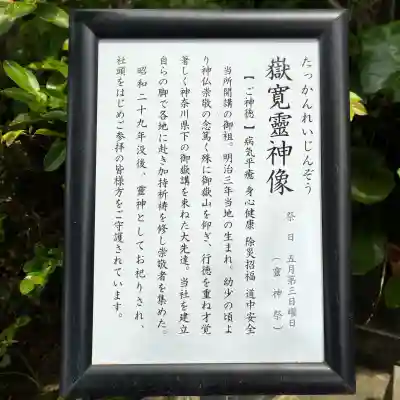 たっかんれいじんぞう
嶽寛靈神像
祭日 五月第三日曜日
(靈神祭)
【ご神徳】病気平癒 身心健康 除災招福 道中安全
当所開講の御祖。明治三年当地の生まれ。幼少の頃よ
り神仏崇敬の念篤く殊に御嶽山を仰ぎ、行徳を重ね才覚
著しく神奈川県下の御嶽講を束ねた大先達。当社を建立
自らの脚で各地に赴き加持祈祷を修し崇敬者を集めた。
昭和二十九年没後、靈神としてお祀りされ、
社頭をはじめご参拝の皆様方をご守護されています。